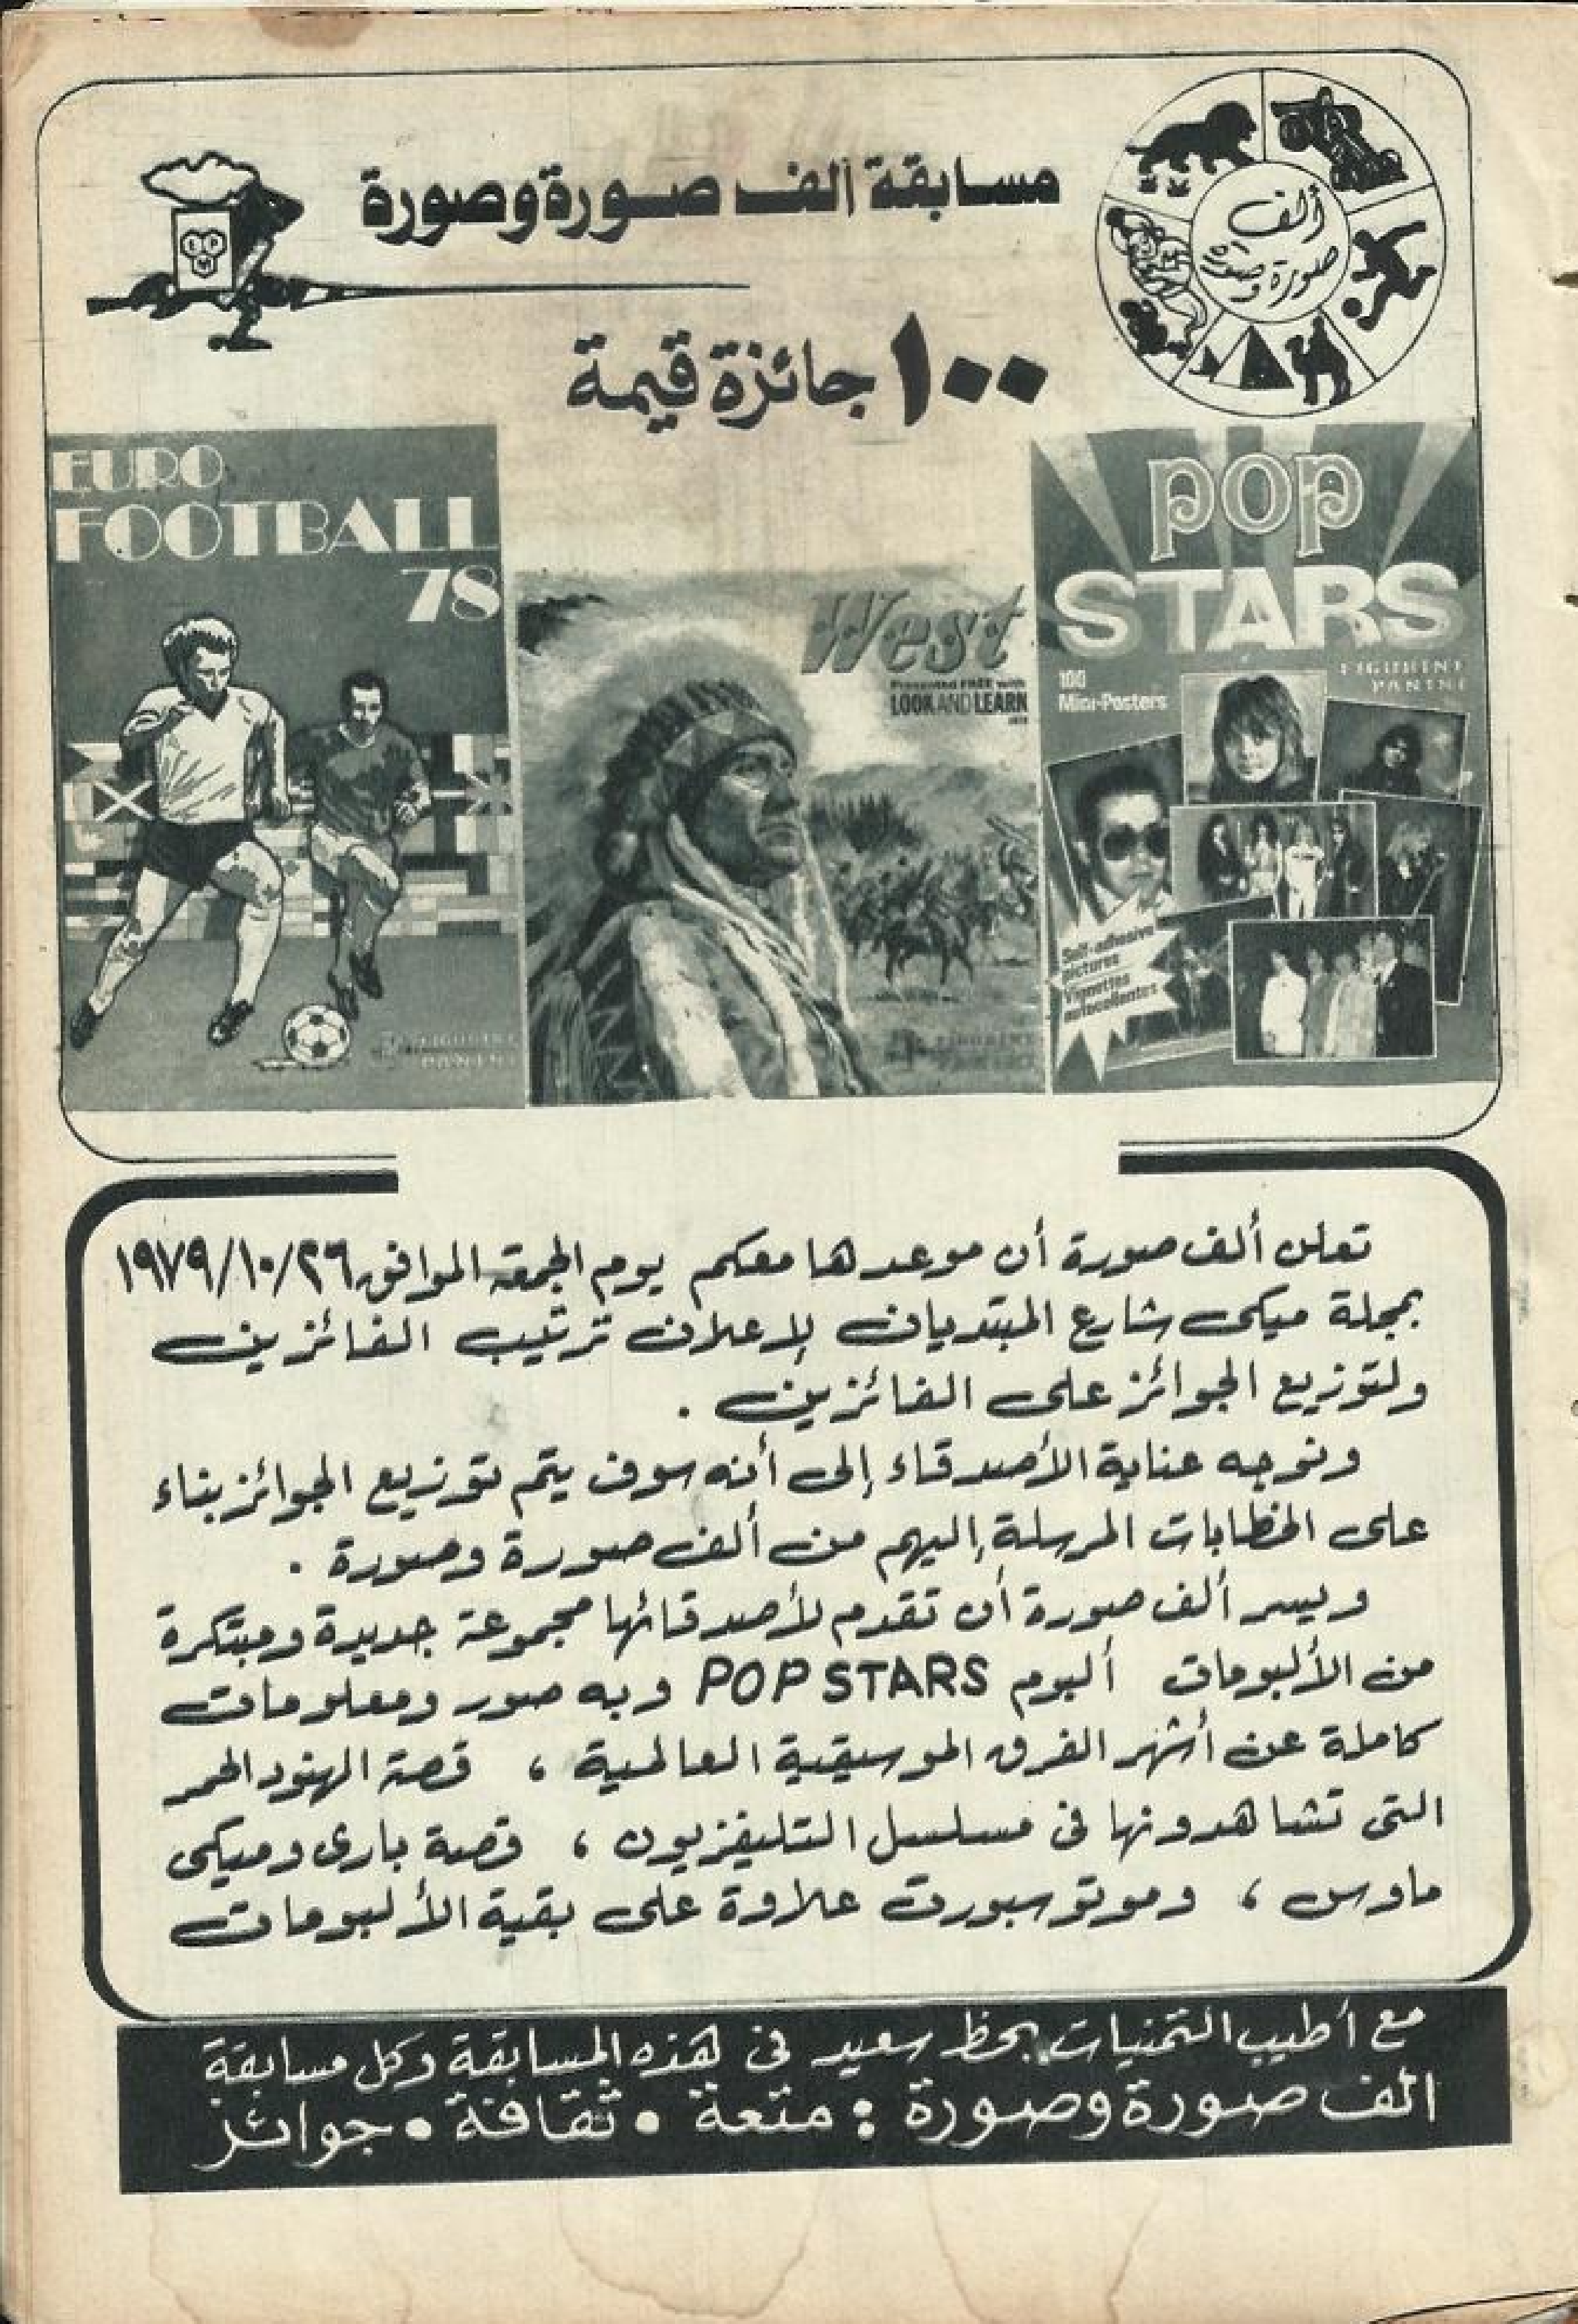 مسابقة ألف صورة وصورة
ألف
صورة وصورة
١٠٠ جائزة قيمة
EURO
FOOTBALL
78
FIGURINE
PANINI
West
Presented FREE with
LOOK AND LEARN
FIGURINE
pop
STARS
FIGURINE
PANINI
100
Mini-Posters
Self-adhesive
pictures
Vignettes
autocollantes
تعلن ألف صورة أن موعدها معكم يوم الجمعة الموافق ٢٦/١٠/١٩٧٩
بمجلة ميكى شارع المبتديان لإعلان ترتيب الفائزين
ولتوزيع الجوائز على الفائزين .
ونوجه عناية الأصدقاء إلى أنه سوف يتم توزيع الجوائز بناء
على الخطابات المرسلة إليهم من ألف صورة وصورة .
ويسر ألف صورة أن تقدم لأصدقائها مجموعة جديدة ومبتكرة
من الألبومات ألبوم POP STARS وبه صور ومعلومات
كاملة عن أشهر الفرق الموسيقية العالمية ، قصة الهنود الحمر
التى تشاهدونها فى مسلسل التليفزيون ، قصة بارى وميكى
ماوس ، وموتو سبورت علاوة على بقية الألبومات
مع أطيب التمنيات بحظ سعيد فى هذه المسابقة وكل مسابقة
ألف صورة وصورة : متعة • ثقافة • جوائز